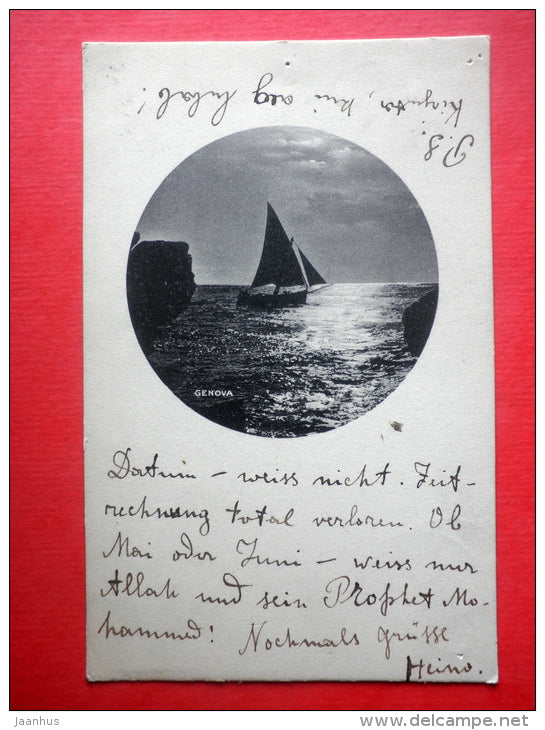 P.S.
Kirjuta, kui aeg lubab!
GENOVA
Datum – weiss nicht. Zeit-
rechnung total verloren. Ob
Mai oder Juni – weiss nur
Allah und sein Prophet Mo-
hammed! Nochmals grüsse
Heino.
Jaanhus
www.delcampe.net